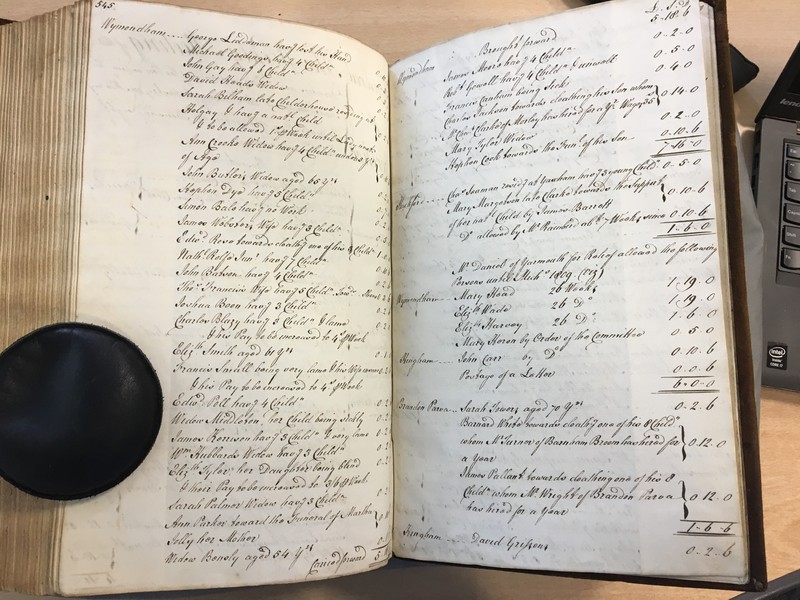 545
Wymondham George Liddiman havg lost his Hand
Michael Goodings havg 4 Childn
John Gay havg 5 Childn
David Hoards Widow
Sarah Belham late Childerhouse residing at
Holgay & havg a natl Child
to be allowed 1s pr Week until
Ann Cooke Widow havg 4 Childn
of Age
John Butlers Widow aged 65 yrs
Stephen Dye havg 5 Childn
Simon Bale havg no Work
James Websters Wife havg 3 Childn
Edwd Rove towards cloathg one of his 9 Childn
Nathl Rolfe Junr havg 7 Childn
John Batson havg 4 Childn
Thos Francis's Wife havg 5 Childn
Joshua Boon havg 3 Childn
Charles Blazy havg 3 Childn & lame
this Pay to be increased to 4s pr Week
Elizth Smith aged 61 yrs
Francis Smell being very lame & his Wife
this Pay to be increased to 4s pr Week
Edwd Poll havg 4 Childn
Widow Middleton, her Child being sickly
James Harrison havg 5 Childn & very lame
Wm Hubbards Widow havg 3 Childn
Elizth Tylor, her Daughter being blind
their Pay to be increased to 3s/6 pr Week
Sarah Palmer Widow havg 3 Childn
Ann Parker toward the Funeral of Martha
Jolly her Mother
Widow Bensly aged 54 yrs
Carried forward
£ s d
Brought forward 5-18-6
Wymondham James Morris havg 4 Childn 0-2-0
Robt Gowell havg 4 Childn 0-5-0
Francis Canham being Sick 0-4-0
Charles Jackson towards cloathing his Son whom
Mr Clarke of Morley has hired for a yr Wages 35s 0-14-0
Mary Tylor Widow 0-2-0
Stephen Cock towards the Funl of his Son 0-10-6
7-16-0
Chas Seaman residg at havg 3 young Childn 0-5-0
Mary Margetson late Clarke towards the Support
of her natl Child by James Barrett 0-10-6
do allowed by Mr 7 Weeks since 0-10-6
1-6-0
Mr Daniel of Yarmouth for Relief allowed the following
Persons until Michs 1809 (viz)
Wymondham Mary Head 26 Weeks 1-19-0
Elizth Wade 26 Do 1-19-0
Elizth Harvey 26 Do 1-6-0
Mary Heron by Order of the Committee 0-5-0
Hingham John Carr by Do 0-10-6
Postage of a Letter 0-0-6
6-0-0
Brandon Parva Sarah Tower aged 70 yrs 0-2-6
Barnard White towards cloathg one of his 8 Childn
whom Mr Turner of Barnham Broom has hired for
a year 0-12-0
James Pallant towards cloathing one of his 8
Childn whom Mr Wright of Brandon Parva
has hired for a year 0-12-0
1-6-6
Hingham David Gressens 0-2-6
lenovo
intel